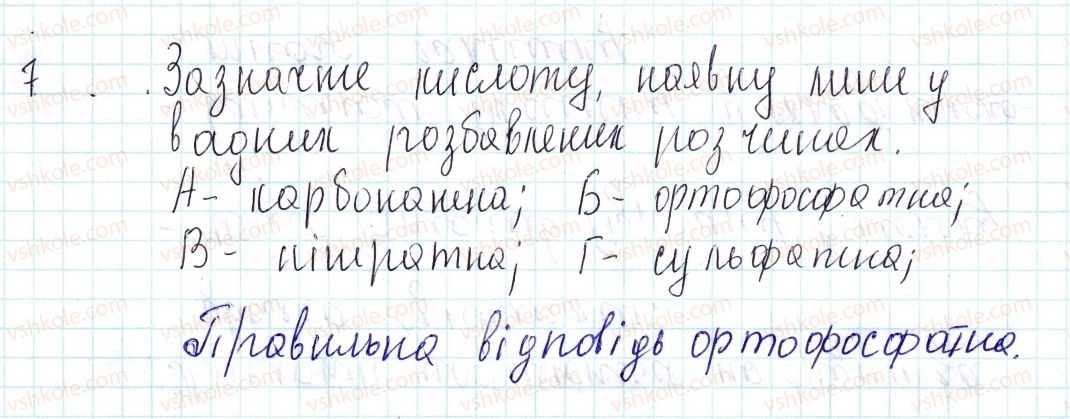 7. Зазначте кислоту, наявну лише у
водних розбавлених розчинах.
А- карбонатна; Б- ортофосфатна;
В- нітратна; Г- сульфатна;
Правильна відповідь ортофосфатна.